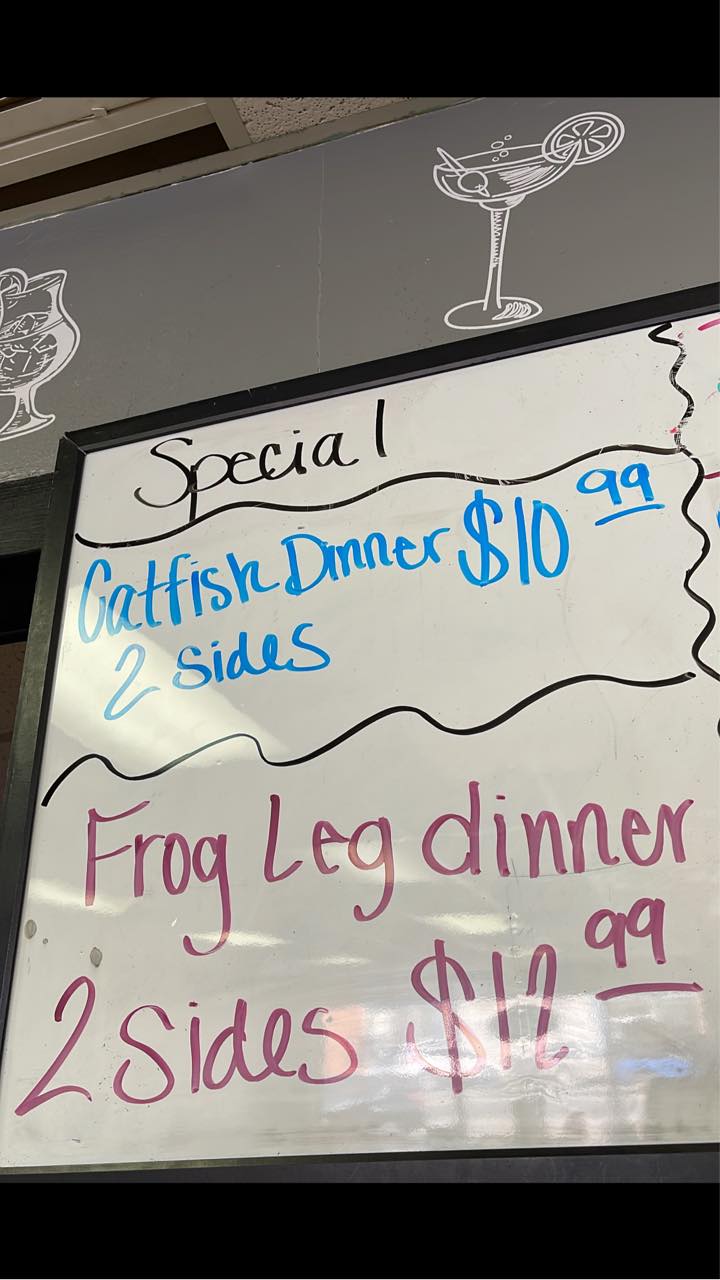 Special
Catfish Dinner $10 99
2 sides
Frog Leg dinner
2 Sides $12 99